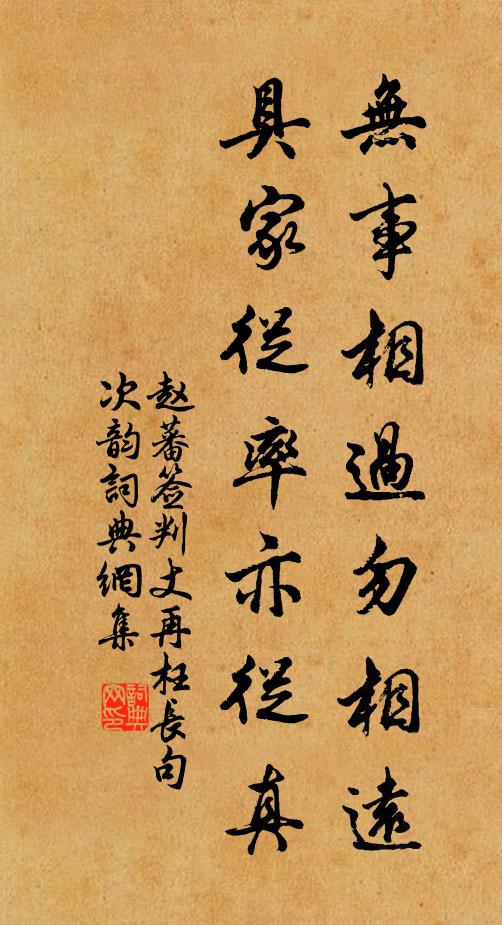 無事相過勿相遠
具家從率亦從真
赵蕃签判丈再枉長句
次韵詞典網集
詞典
网印